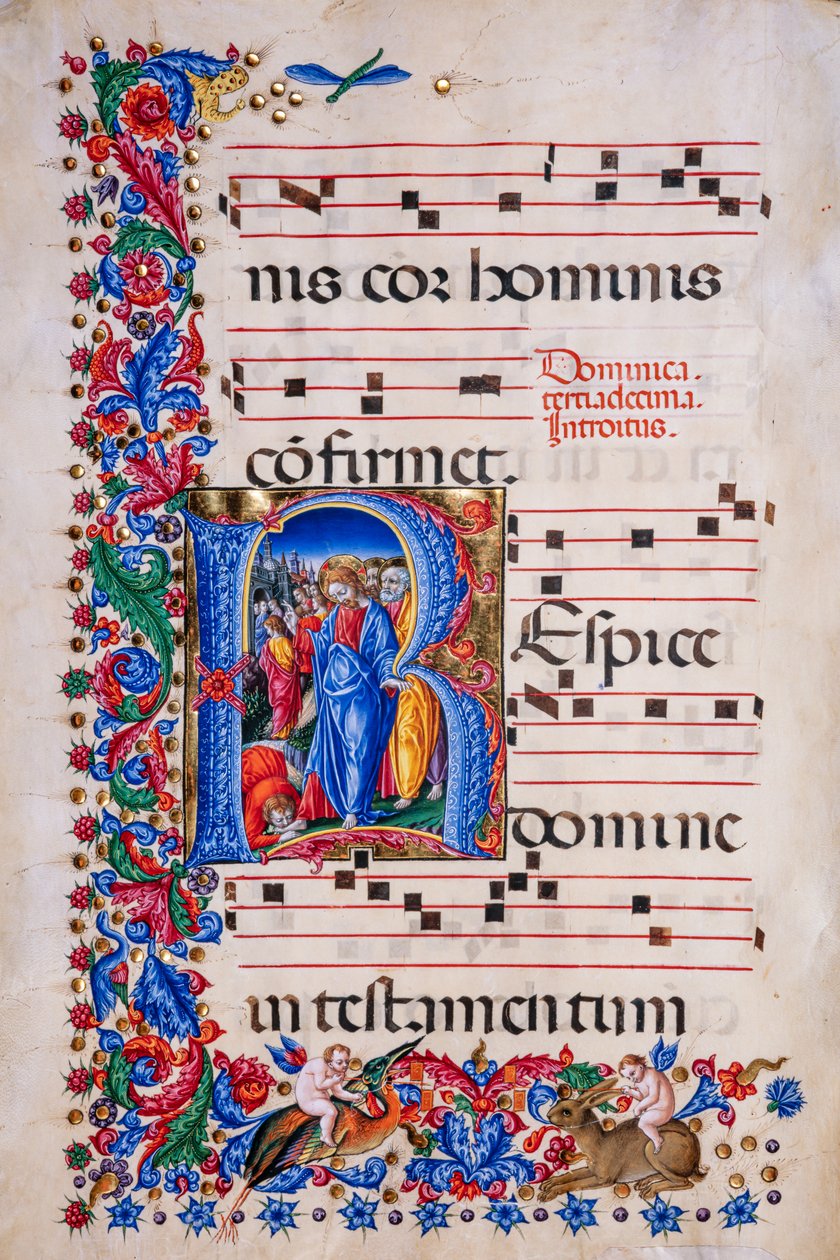 nis cor hominis
cōfirmet.
Dominica.
tertiadecima.
Introitus.
REspice
domine
in testamentum